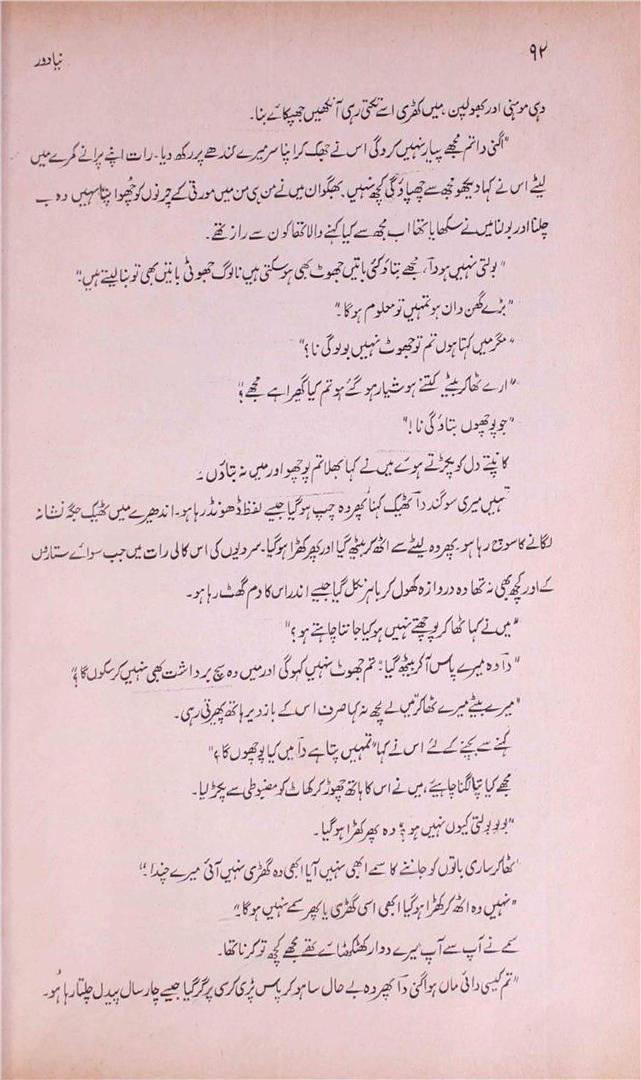 ۹۲
نیا دور
وہی موہنی اور کھولپن، میں کھڑی اسے تکتی رہی آنکھیں جھپکائے بنا۔
"اگنی دا تم مجھے پیار نہیں کرو گی اس نے جھک کر اپنا سر میرے کندھے پر رکھ دیا۔ رات اپنے پرانے کمرے میں
لیٹے اس نے کہا دیکھو مجھ سے چھپاؤ گی کچھ نہیں۔ بھگوان میں نے من ہی من میں مورتی کے چرنوں کو چھوا اپتا نہیں وہ جسے
چلنا اور بولنا میں نے سکھایا تھا اب مجھ سے کیا کہنے والا تھا کون سے راز تھے۔
"بولتی نہیں ہو دآ، مجھے بتاؤ کئی باتیں جھوٹ بھی ہو سکتی ہیں نا لوگ جھوٹی باتیں بھی تو بنا لیتے ہیں۔"
"بڑے گھن دان ہو تمہیں تو معلوم ہو گا۔"
"مگر میں کہتا ہوں تم تو جھوٹ نہیں بولو گی نا؟"
"ارے ٹھاکر بیٹے کتنے ہوشیار ہو گئے ہو تم کیا گھیرا ہے مجھے؟"
"جو پوچھوں بتاؤ گی نا!"
کانپتے دل کو پکڑتے ہوئے میں نے کہا بھلا تم پوچھو اور میں نہ بتاؤں۔
تمہیں میری سوگند دآ ٹھیک کہنا پھر وہ چپ ہو گیا جیسے لفظ ڈھونڈ رہا ہو۔ اندھیرے میں ٹھیک جگہ نشانہ
لگانے کا سوچ رہا ہو۔ پھر وہ لیٹے سے اٹھ کر بیٹھ گیا اور پھر کھڑا ہو گیا۔ سردیوں کی اس کالی رات میں جب سوائے ستاروں
کے اور کچھ بھی نہ تھا وہ دروازہ کھول کر باہر نکل گیا جیسے اندر اس کا دم گھٹ رہا ہو۔
"میں نے کہا ٹھاکر پوچھتے نہیں ہو کیا جاننا چاہتے ہو؟"
"دآ وہ میرے پاس آ کر بیٹھ گیا۔ تم جھوٹ نہیں کہو گی اور میں وہ سچ برداشت بھی نہیں کر سکوں گا؟"
"میرے بیٹے میرے ٹھاکر" میں نے کچھ نہ کہا صرف اس کے بازو پر ہاتھ پھیرتی رہی۔
کہنے سے بچنے کے لئے اس نے کہا "تمہیں پتا ہے دآ میں کیا پوچھوں گا؟"
مجھے کیا پتا لگنا چاہیئے، میں نے اس کا ہاتھ چھوڑ کر کھاٹ کو مضبوطی سے پکڑ لیا۔
"بو بو بولتی کیوں نہیں ہو؟" وہ پھر کھڑا ہو گیا۔
"ٹھاکر ساری باتوں کو جاننے کا سمے ابھی نہیں آیا ابھی وہ گھڑی نہیں آئی میرے چندا۔"
"نہیں وہ اٹھ کر کھڑا ہو گیا ابھی اسی گھڑی یا پھر سمے نہیں ہو گا۔"
سمے نے آپ سے آپ میرے دوار کھٹکھٹائے تھے مجھے کچھ تو کرنا تھا۔
"تم کیسی دائی ماں ہو اگنی دآ پھر وہ بے حال سا ہو کر پاس پڑی کرسی پر گر گیا جیسے چار سال پیدل چلتا رہا ہو۔